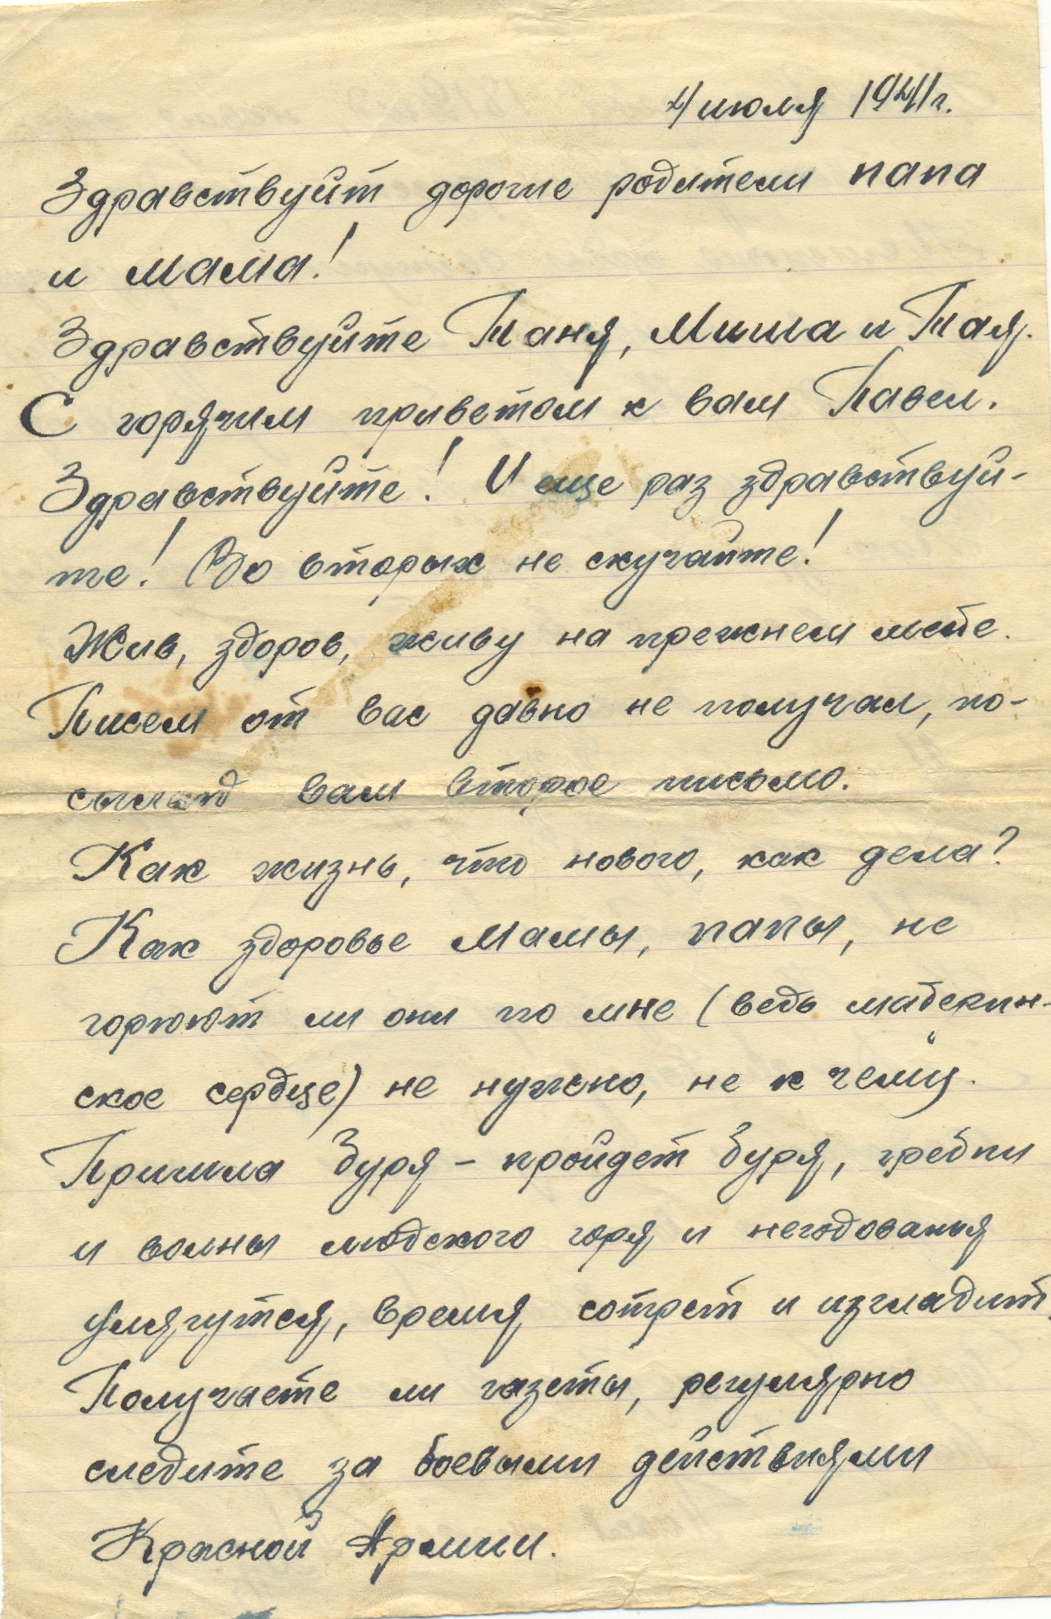 4 июля 1941 г.
Здравствуйт дорогие родители папа
и мама!
Здравствуйте Таня, Миша и Тая.
С горячим приветом к вам Павел.
Здравствуйте! И еще раз здравствуй-
те! Во вторых не скучайте!
Жив, здоров, живу на прежнем месте.
Писем от вас давно не получал, по-
сылаю вам второе письмо.
Как жизнь, что нового, как дела?
Как здоровье мамы, папы, не
горюют ли они по мне (ведь материн-
ское сердце) не нужно, не к чему.
Пришла буря – пройдет буря, гребни
и волны людского горя и негодованья
улягутся, время сотрет и изгладит.
Получаете ли газеты, регулярно
следите за боевыми действиями
Красной Армии.